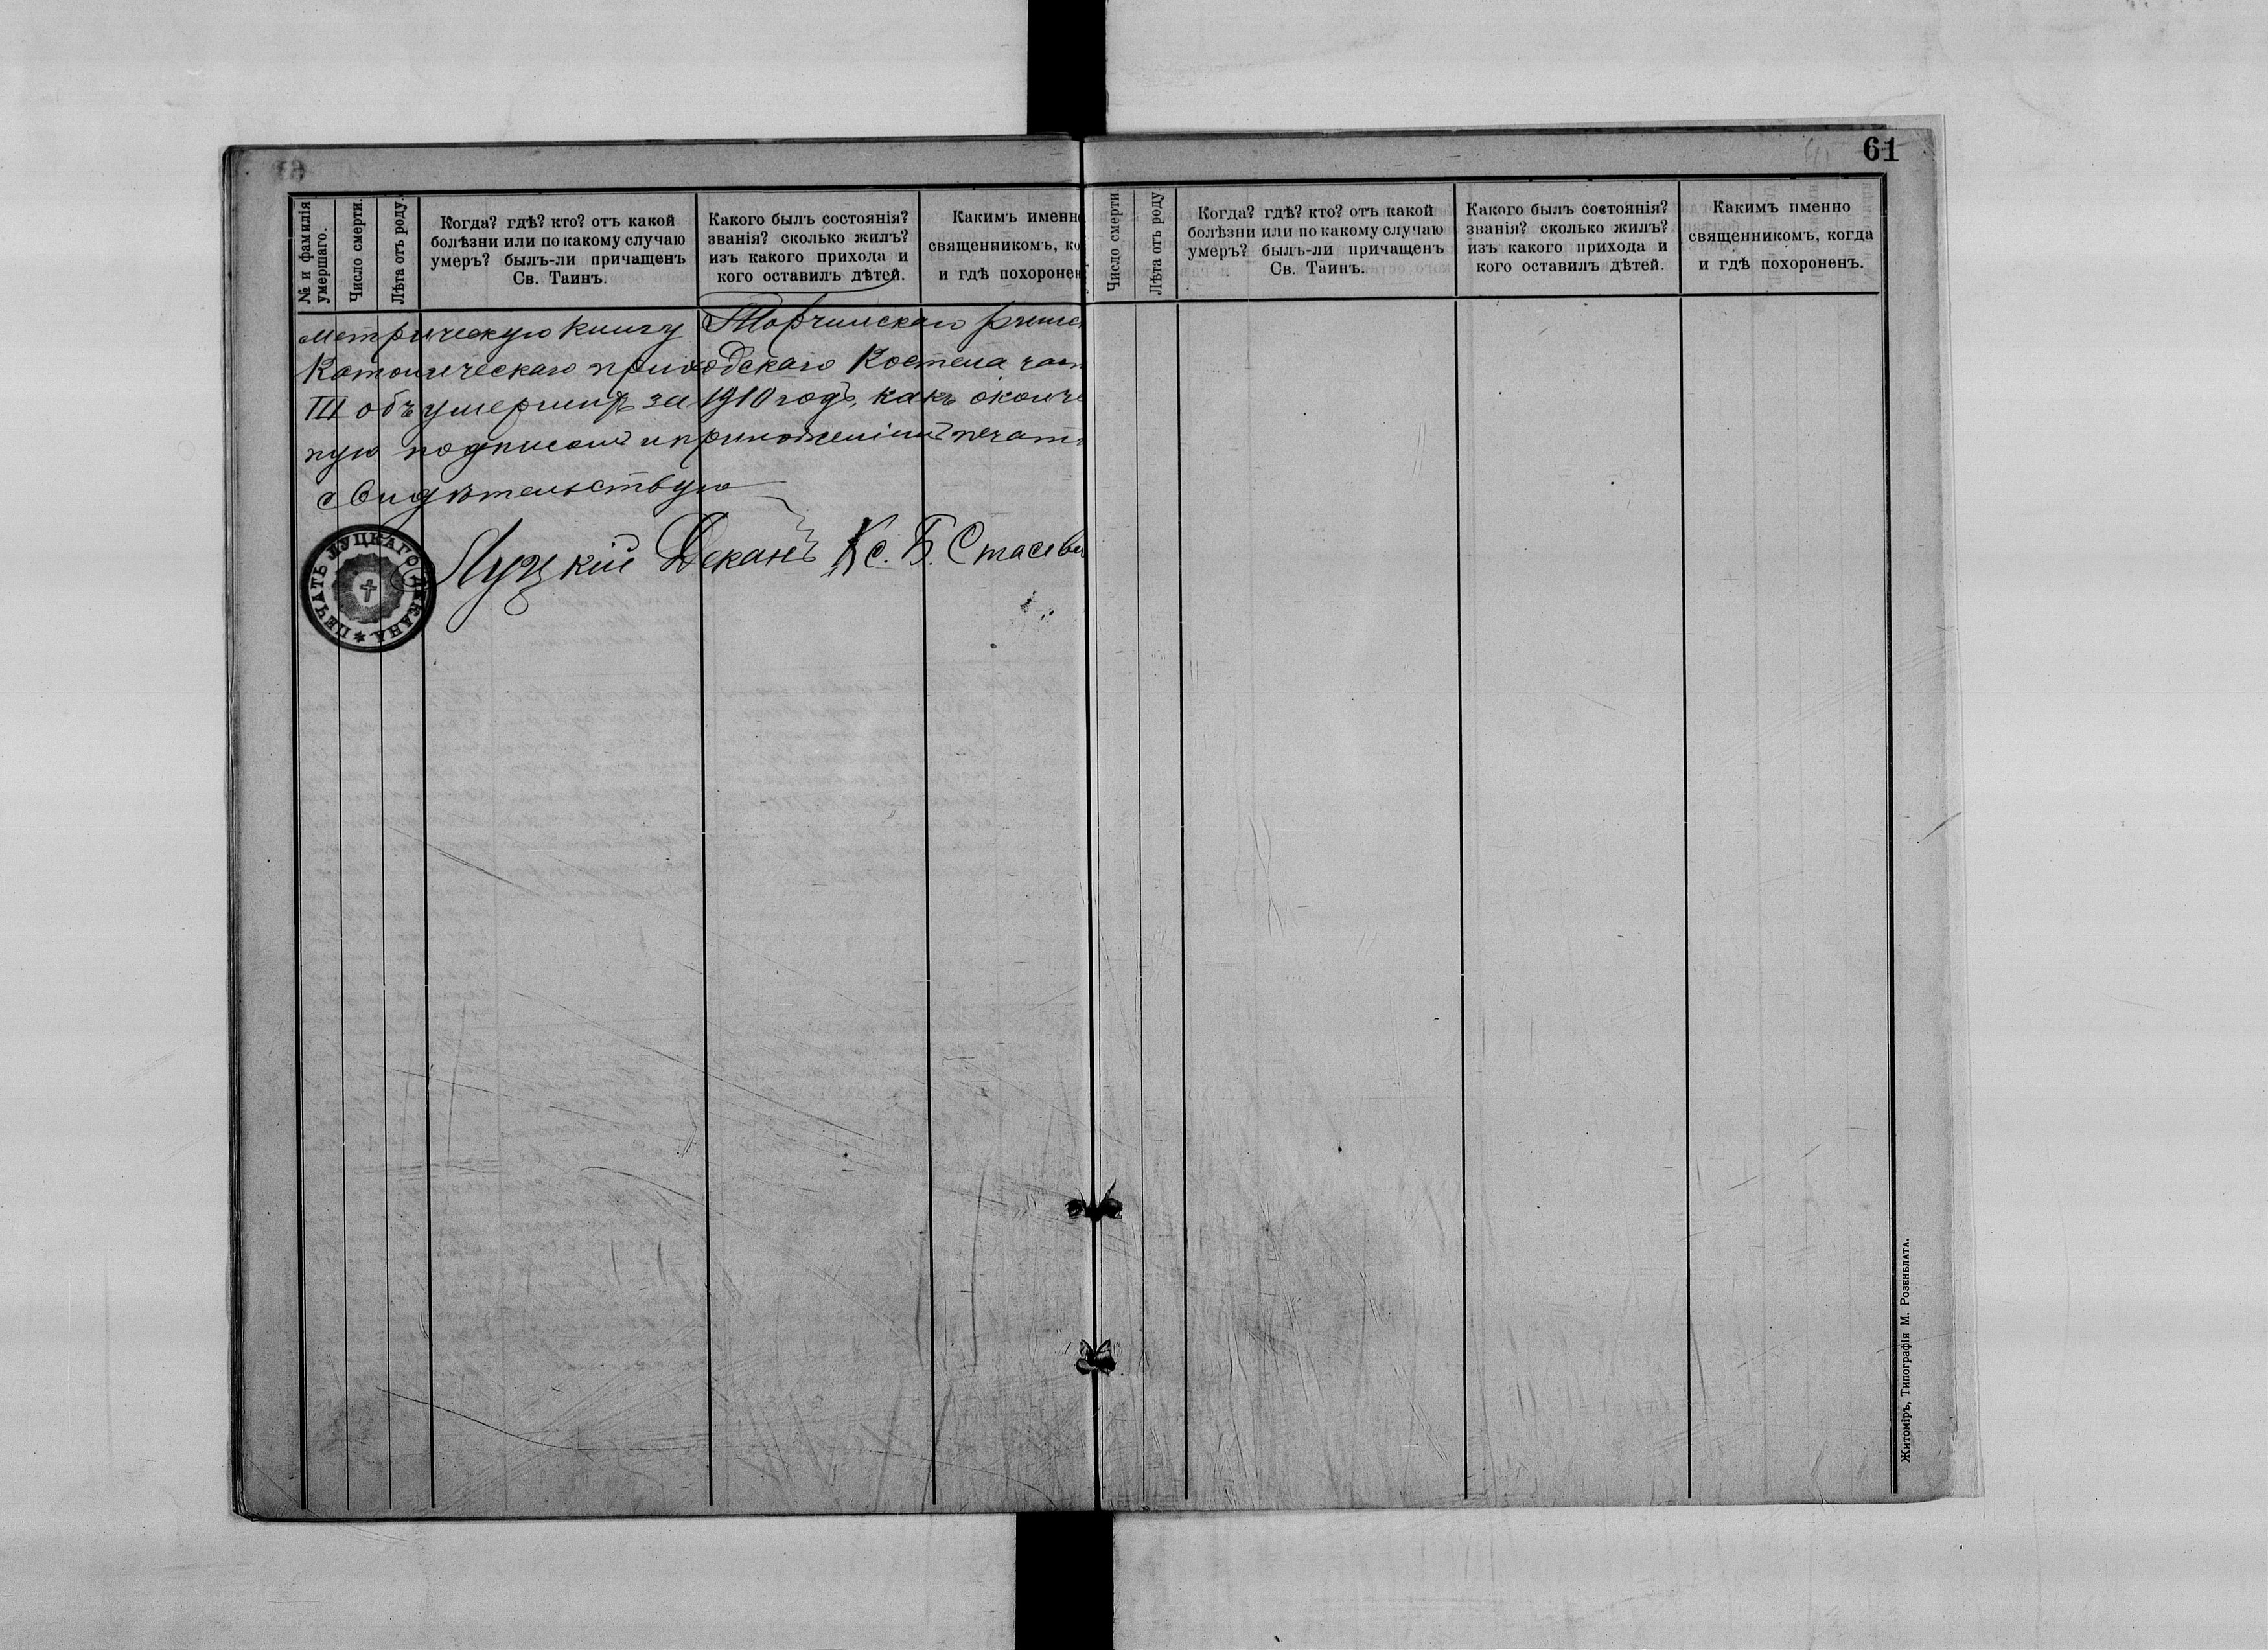 61
№ и фамилія
умершаго.
Число смерти.
Лѣта отъ роду.
Когда? гдѣ? кто? отъ какой
болѣзни или по какому случаю
умеръ? былъ-ли причащенъ
Св. Таинъ.
Какого былъ состоянія?
званія? сколько жилъ?
изъ какого прихода и
кого оставилъ дѣтей.
Какимъ именно
священникомъ, ко
и гдѣ похоронен
метрическую книгу Торчинскаго римс
Католическаго приходскаго Костела част
III объ умершихъ за 1910 годъ, какъ оконче
ную подписомъ и приложеніемъ печати
свидѣтельствую
Луцкій Деканъ Кс. Б. Стасеви
ПЕЧАТЬ ЛУЦКАГО ДЕКАНА
Число смерти
Лѣта отъ роду
Когда? гдѣ? кто? отъ какой
болѣзни или по какому случаю
умеръ? былъ-ли причащенъ
Св. Таинъ.
Какого былъ состоянія?
званія? сколько жилъ?
изъ какого прихода и
кого оставилъ дѣтей.
Какимъ именно
священникомъ, когда
и гдѣ похороненъ.
Житоміръ, Типографія М. Розенблата.